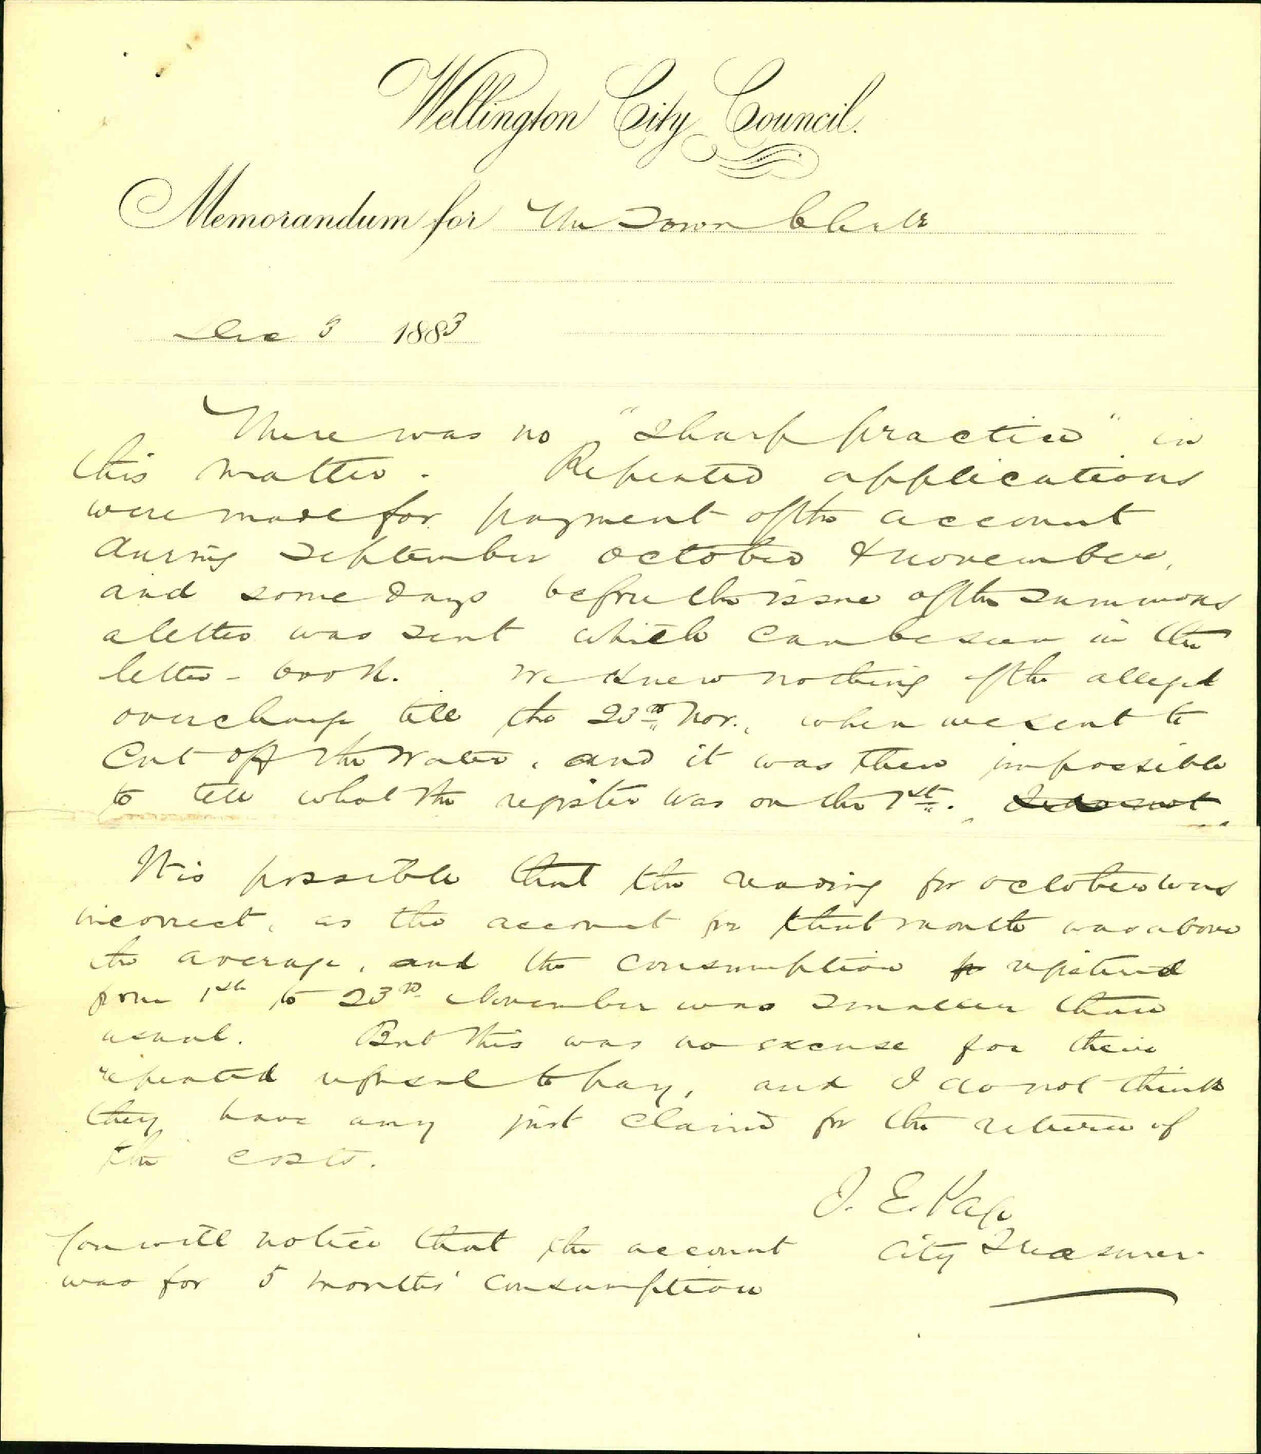 Wellington City Council.
Memorandum for The Town Clerk
Dec 3 1883
There was no "sharp practice" in
this matter. Repeated applications
were made for payment of the account
during September October & November,
and some days before the issue of the summons
a letter was sent which can be seen in the
letter-book. We knew nothing of the alleged
overcharge till the 23rd Nov., when we sent to
cut off the water, and it was then impossible
to tell what the register was on the 1st.
It is possible that the reading for October was
incorrect, as the account for that month was above
the average, and the consumption registered
from 1st to 23rd November was smaller than
usual. But this was no excuse for their
repeated refusal to pay, and I do not think
they have any just claim for the return of
the costs.
J. E. Page
City Treasurer
You will notice that the account
was for 5 months' consumption